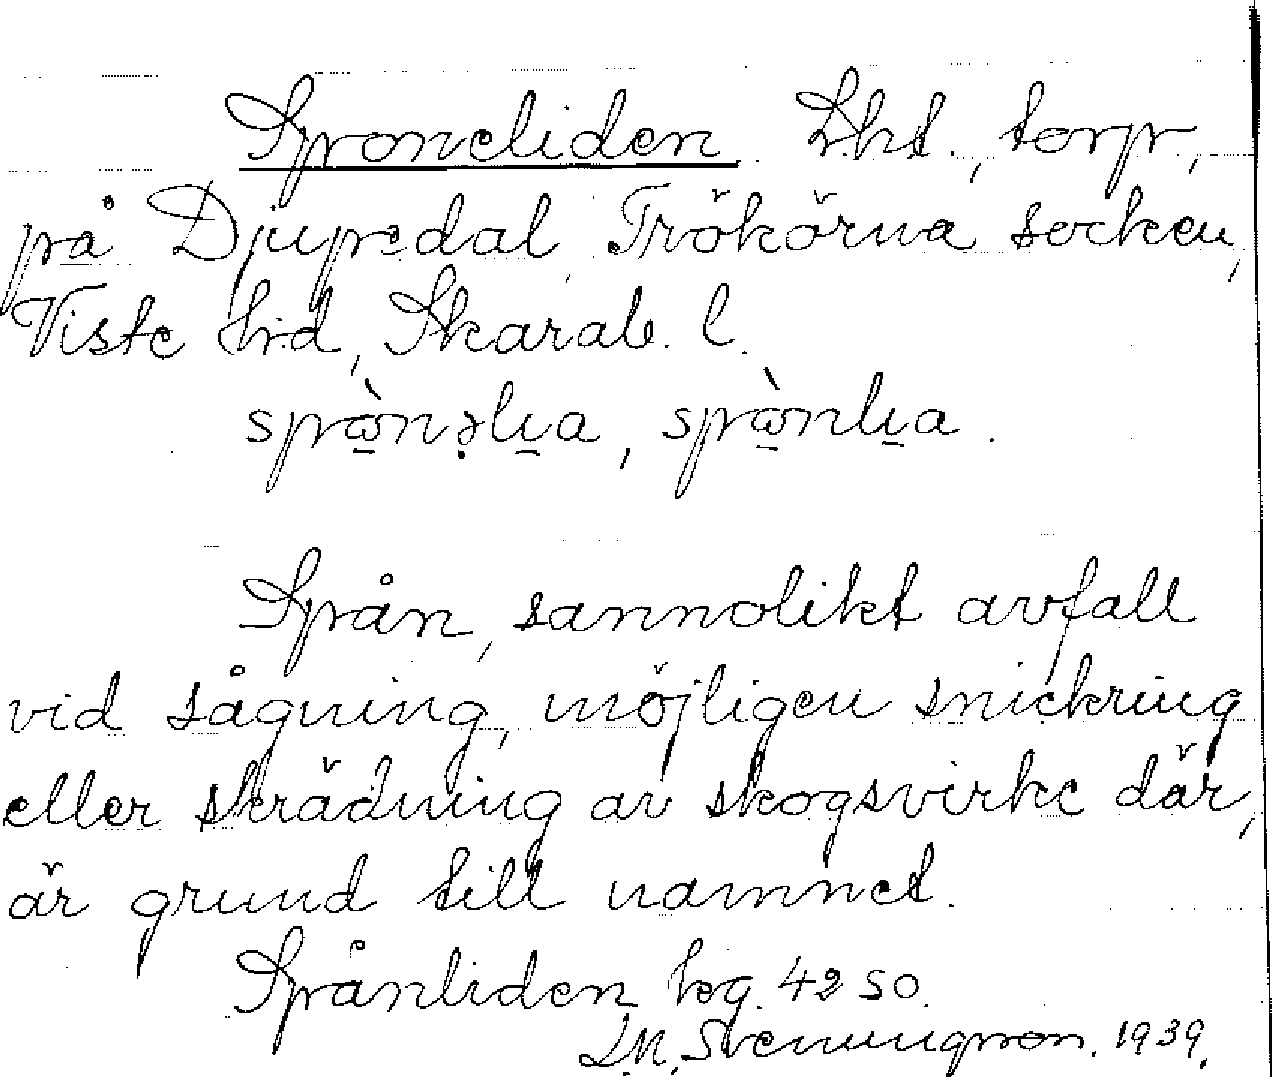 Sponeliden Lht., torp,
på Djupedal, Trökörna socken,
Viste hd, Skarab. l.
spὼ̱nəlı̱a, spὼ̱nlı̱a.
Spån, sannolikt avfall
vid sågning, möjligen snickring
eller skrädning av skogsvirke där,
är grund till namnet.
Spånliden hg. 42 SO.
Sveningsson. 1939.